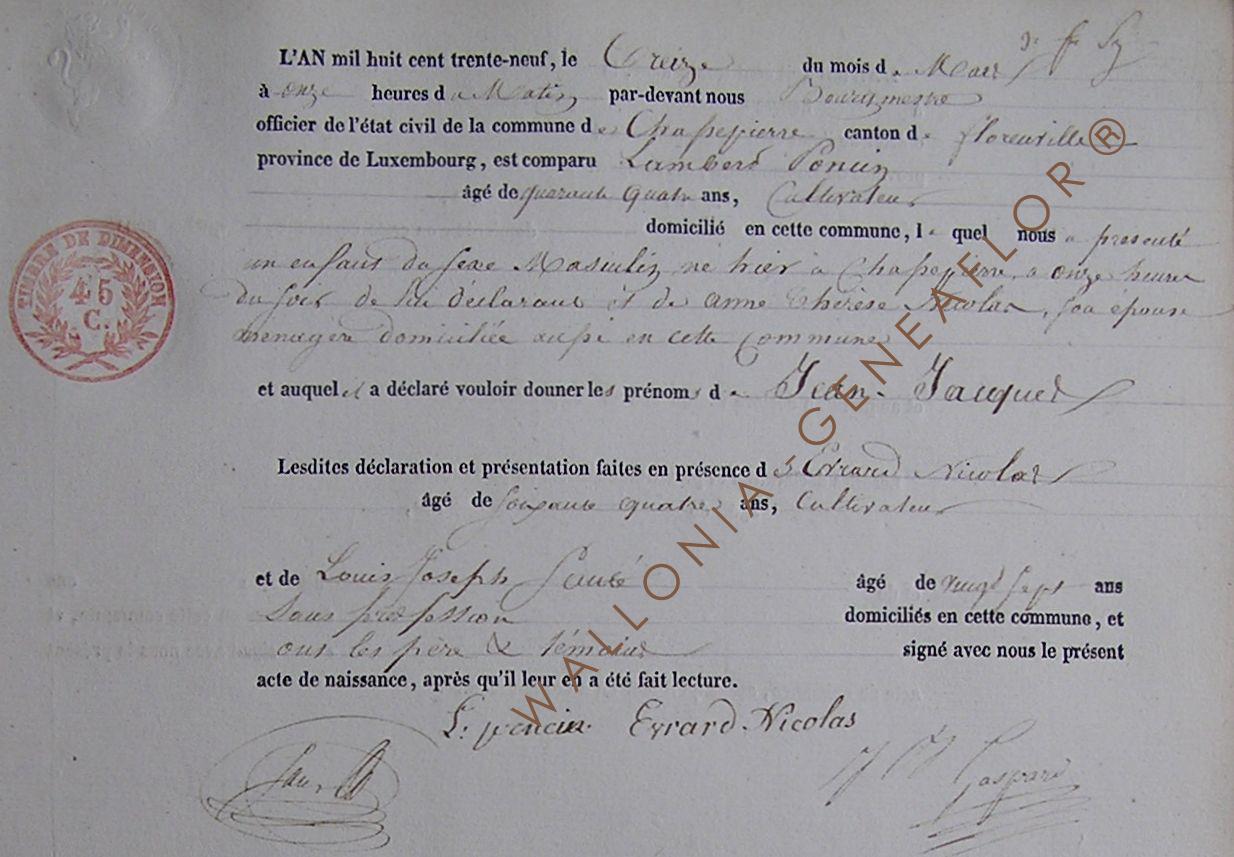 L'AN mil huit cent trente-neuf, le Treize du mois de Mars
à onze heures du Matin par-devant nous Bourgmestre
officier de l'état civil de la commune de Chassepierre canton de florenville
province de Luxembourg, est comparu Lambert Poncin
âgé de quarante quatre ans, Cultivateur
domicilié en cette commune, le quel nous a presenté
un enfant du sexe Masculin, né hier à Chassepierre, a onze heures
du soir de lui déclarant et de anne Thérèse Nicolas, son epouse
menagère domiciliée aussi en cette Commune
et auquel il a déclaré vouloir donner les prénoms de Jean-Jacques
Lesdites déclaration et présentation faites en présence d Evrard Nicolas
âgé de soixante quatre ans, Cultivateur
et de Louis Joseph âgé de vingt sept ans
Sans profession domiciliés en cette commune, et
ont les père & témoins signé avec nous le présent
acte de naissance, après qu'il leur en a été fait lecture.
L. poncin Evrard Nicolas
Gaspard
TIMBRE DE DIMENSION
45
C.
WALLONIA-GENEAFLOR®